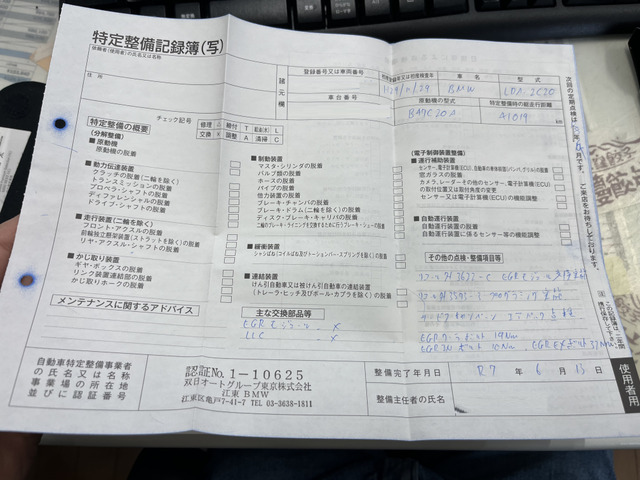 特定整備記録簿(写)
依頼者(使用者)の氏名又は名称
住所
諸元欄
登録番号又は車両番号
車台番号
車名
BMW
型式
LDA-2C20
原動機の型式
B47C20A
特定整備時の総走行距離
41019
km
チェック記号
修理 △ 締付 T 給油(水) L
交換 × 調整 A 清掃 C
特定整備の概要
(分解整備)
■原動機
原動機の脱着
■動力伝達装置
クラッチの脱着(二輪を除く)
トランスミッションの脱着
プロペラシャフトの脱着
ディファレンシャルの脱着
ドライブ・シャフトの脱着
■走行装置(二輪を除く)
フロント・アクスルの脱着
前輪独立懸架装置(ストラットを除く)の脱着
リヤ・アクスル・シャフトの脱着
■かじ取り装置
ギヤ・ボックスの脱着
リンク装置連結部の脱着
かじ取りホークの脱着
■制動装置
マスタ・シリンダの脱着
バルブ類の脱着
ホースの脱着
パイプの脱着
倍力装置の脱着
ブレーキ・チャンバの脱着
ブレーキ・ドラム(二輪を除く)の脱着
ディスク・ブレーキ・キャリパの脱着
二輪のブレーキ・ライニングを交換するために行うブレーキ・シューの脱着
■緩衝装置
シャシばね(コイルばね及びトーションバー・スプリングを除く)の脱着
■連結装置
けん引自動車又は被けん引自動車の連結装置
(トレーラ・ヒッチ及びボール・カプラを除く)の脱着
(電子制御装置整備)
■運行補助装置
センサー、電子計算機(ECU)、自動車の車体前部(バンパ、グリル)の脱着
窓ガラスの脱着
カメラ、レーダーその他のセンサー、電子計算機(ECU)
の取付位置又は取付角度の変更
センサー又は電子計算機(ECU)の機能調整
■自動運行装置
自動運行装置の脱着
自動運行装置に係るセンサー等の機能調整
その他の点検・整備項目等
メンテナンスに関するアドバイス
主な交換部品等
EGRモジュール - ×
LLC - ×
自動車特定整備事業者
の氏名又は名称
事業場の所在地
並びに認証番号
認証No. 1-10625
双日オートグループ東京株式会社
江東 BMW
江東区亀戸7-41-7 TEL 03-3638-1811
整備完了年月日
R7 年 6 月 15 日
整備主任者の氏名
使用者用